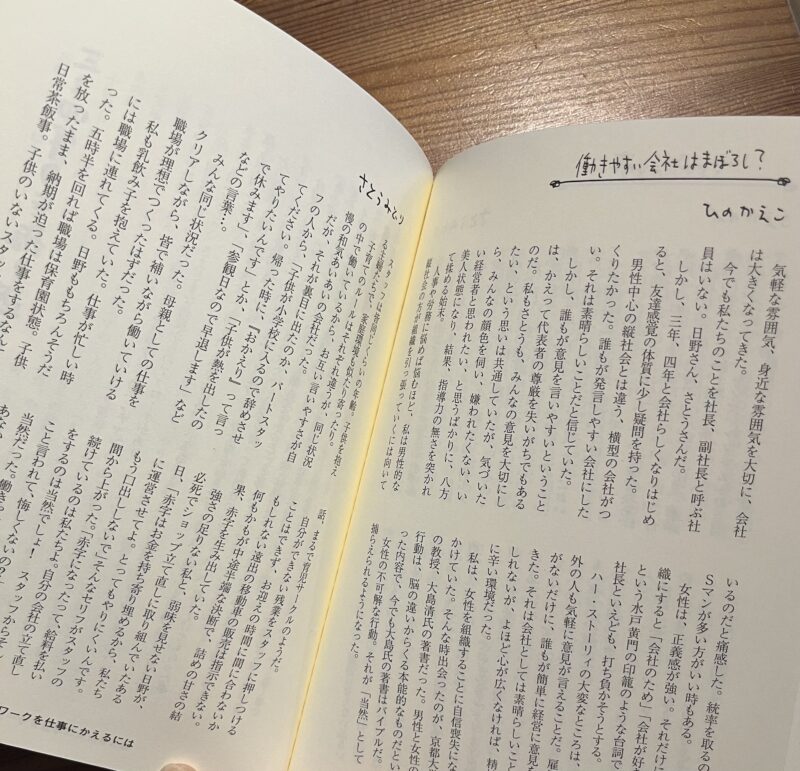 働きやすい会社はまぼろし?
ひのかえこ
気軽な雰囲気、身近な雰囲気を大切に、会社
は大きくなってきた。
今でも私たちのことを社長、副社長と呼ぶ社
員はいない。日野さん、さとうさんだ。
しかし、三年、四年と会社らしくなりはじめ
ると、友達感覚の体質に少し疑問を持った。
男性中心の縦社会とは違う、横型の会社がつ
くりたかった。誰もが発言しやすい会社にした
い。それは素晴らしいことだと信じていた。
しかし、誰もが意見を言いやすいということ
は、かえって代表者の尊厳を失いがちでもある
のだ。私もさとうも、みんなの意見を大切にし
たい、という思いは共通していたが、気づいた
ら、みんなの顔色を伺い、嫌われたくない、い
い経営者と思われたい、と思うばかりに、八方
美人状態になり、結果、指導力の無さを突かれ
て揉める始末。
人事や労務に悩めば悩むほど、私は男性的な
縦社会の方が組織を引っ張っていくには向いて
いるのだと痛感した。統率を取るの
Sマンが多い方がいい時もある。
女性は、正義感が強い。それだけに
織にすると「会社のため」「会社が好き
という水戸黄門の印籠のような台詞で
社長といえども、打ち負かそうとする。
ハー・ストーリィの大変なところは、
外の人も気軽に意見が言えることだ。雇
がないだけに、誰もが簡単に経営に意見を
きた。それは会社としては素晴らしいこと
しれないが、よほど心が広くなければ、精
に辛い環境だった。
私は、女性を組織することに自信喪失にな
かけていた。そんな時出会ったのが、京都大
の教授、大島清氏の著書だった。男性と女性の
行動は、脳の違いからくる本能的なものだとい
った内容で、今でも大島氏の著書はバイブルだ。
女性の不可解な行動。それが「当然」として
捕らえられるようになった。
さとうみどり
スタッフは皆同じくらいの年齢。子供を抱え
る主婦たちで、家庭環境も似たり寄ったり。
子育てのルールはそれぞれ違うが、同じ状況
の中で働いているから、お互い言いやすさが自
慢の和気あいあいの会社だった。
だが、それが裏目に出たのか、パートスタッ
フの人から、「子供が小学校に入るので辞めさせ
てください。帰った時に、『おかえり』って言っ
てやりたいんです」とか、「子供が熱を出したの
で休みます」、「参観日なので早退します」など
などの言葉…。
みんな同じ状況だった。母親としての仕事を
クリアしながら、皆で補いながら働いていける
職場が理想でつくったはずだった。
私も乳飲み子を抱えていた。仕事が忙しい時
には職場に連れてくる。日野ももちろんそうだ
った。五時半を回れば職場は保育園状態。子供
を放ったまま、納期が迫った仕事をするなんて
日常茶飯事。子供のいないスタッフ
話、まるで育児サークルのようだ。
自分ができない残業をスタッフに押しつける
ことはできず、お迎えの時間に間に合わないか
もしれない遠出の移動や販売は指示できない。
何もかもが中途半端な決断で、詰めの甘さの結
果、赤字を生み出していた。
強さの足りない私と、弱味を見せない日野が、
必死でショップ立て直しに取り組んでいたある
日、「赤字はお金を持ち寄り埋めるから、私たち
に運営させてよ。とってもやりにくいんです。
もう口出ししないで」そんなセリフがスタッフの
間から上がった。「赤字になったって、給料を払い
続けているのは私たちよ。自分の会社の立て直し
をするのは当然でしょ! スタッフからそ
こと言われて、悔しくないの?」
当然だった。働き
ワークを仕事にかえるには